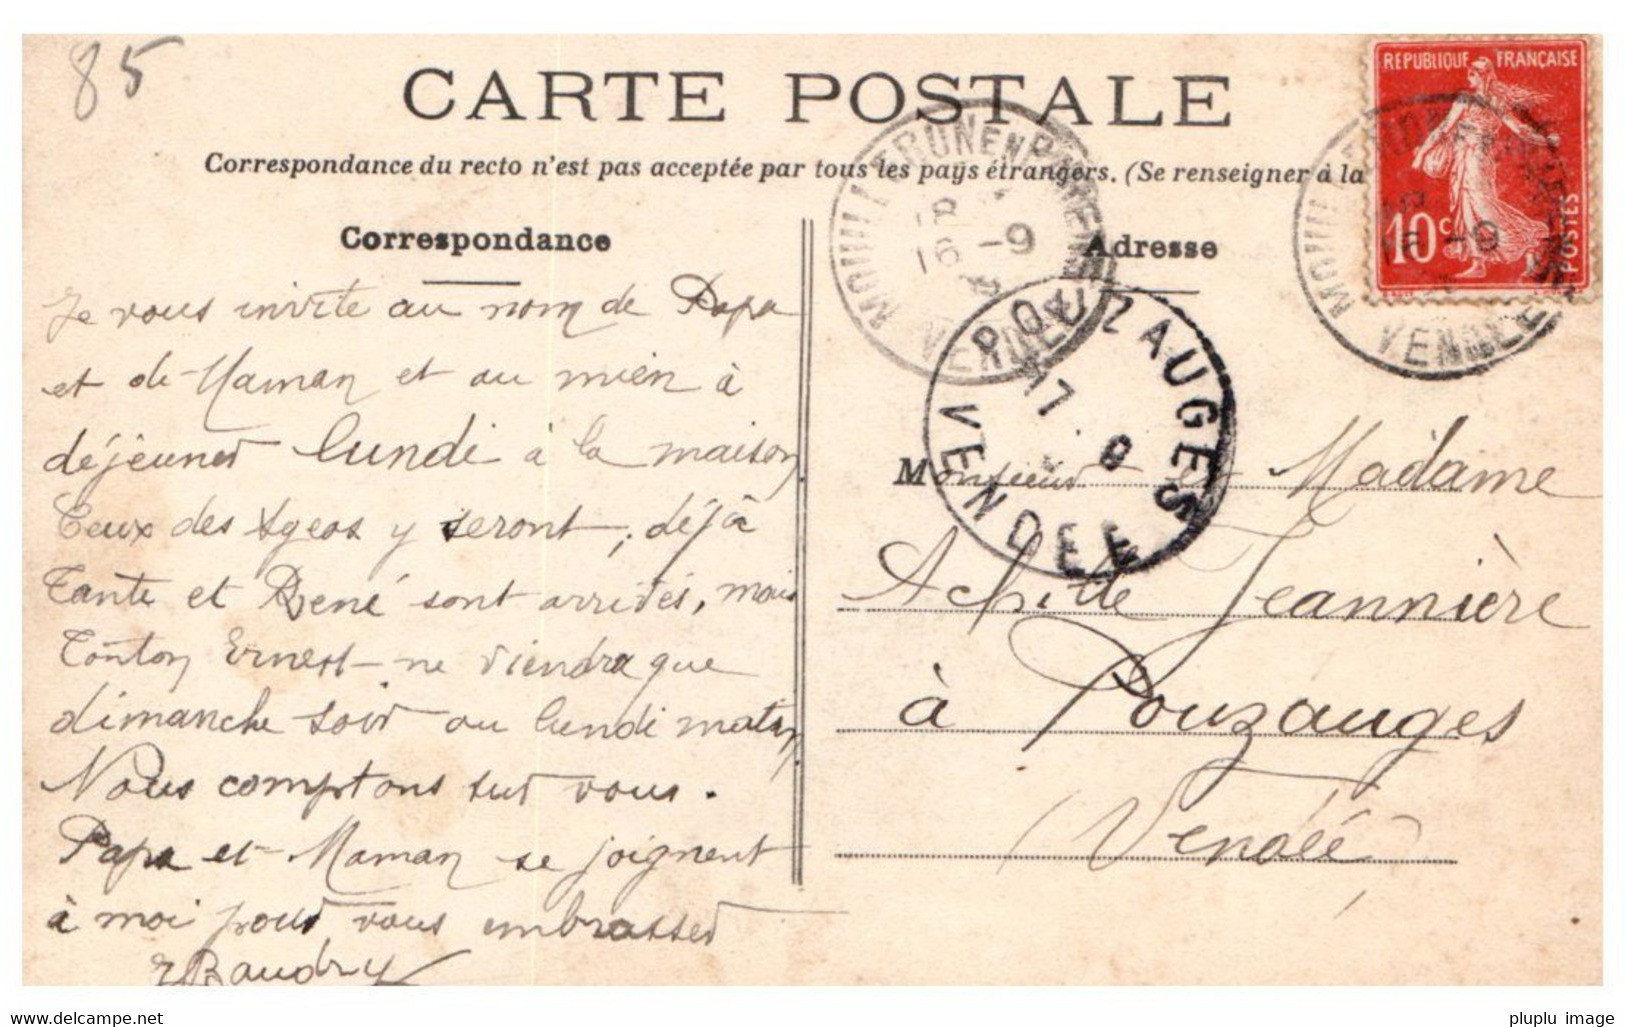 85
CARTE POSTALE
Correspondance du recto n'est pas acceptée par tous les pays étrangers. (Se renseigner à la
RÉPUBLIQUE FRANÇAISE
10 c
POSTES
MOUILLERON EN PAREDS
18
16 -9
VENDEE
MOUILLERON EN PAREDS
16 -9
VENDEE
POUZAUGES
17 9
VENDEE
Correspondance
Je vous invite au nom de Papa
et de Maman et au mien à
déjeuner lundi à la maison
Ceux des y seront, déjà
Tante et René sont arrivés, mais
Tonton Ernest ne viendra que
dimanche soir ou lundi matin
Nous comptons sur vous.
Papa et Maman se joignent
à moi pour vous embrasser
Baudry
Adresse
Monsieur et Madame
Achille Jeannière
à Pouzauges
(Vendée)
www.delcampe.net
pluplu image